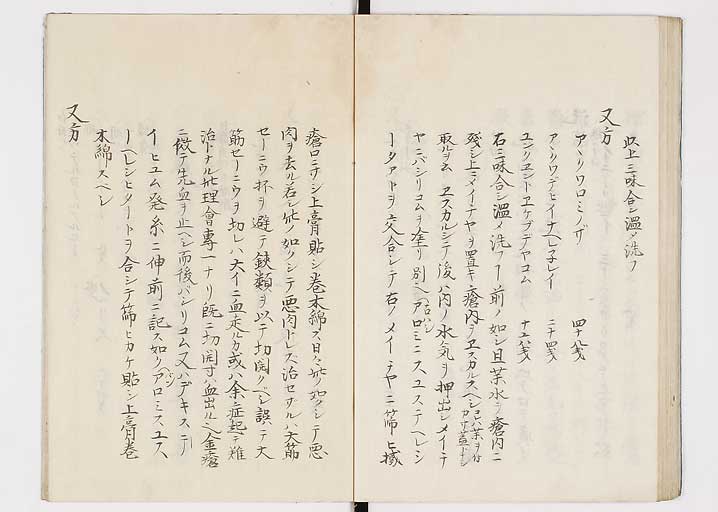 以上三味合シ温メ洗フ
又方
アヽリワロミノザ 四十八箋
アヽリワデヒイナヘレ子レイ 二十四箋
ユンクエントエケブデヤコム 十二箋
右三味合シ温メ洗フヿ前ノ如シ且葉水ヲ瘡内ニ
残シ上ミメイチヤヲ置キ瘡内ヲエスカルスヘシ
取ルヲム エスカルシテ後ハ内ノ水気ヲ押出シメイテ
ヤニバシリコムヲ塗リ別ヘアロミニスユステヘレシ
ータアトヲ交合シテ右ノメイテヤニ篩ヒ掾
瘡口ニサシ上膏貼シ巻木綿ス日々此ノ如クシテ悪
肉ヲ去ル若シ此ノ如クシテ悪肉トレズ治セザルハ大筋
セーニウ抔ヲ避テ鋏類ヲ以テ切開クベシ誤テ大
筋セーニウヲ切レハ大イニ血走ルカ或ハ余ノ症起テ難
治トナル此理會専一ナリ既ニ切開寸ハ血出ルヘ金瘡
ニ傚テ先血ヲ止ヘシ而後バシリコム又ハデキステテ
イヒユム発糸ニ伸前ニ記ス如クアロミスユス
ーヘレシヒタートヲ合シテ篩ヒカケ貼シ上膏巻
木綿スベシ
又方